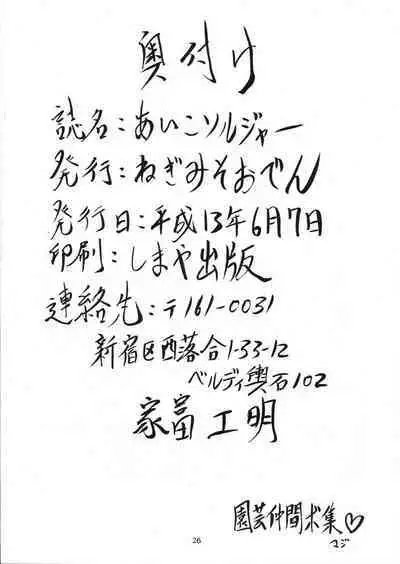 奥付け
誌名：あいこソルジャー
発行：ねぎみそおでん
発行日：平成13年6月7日
印刷：しまや出版
連絡先：〒161-0031
新宿区西落合1-33-12
ベルディ輿石102
家富工明
園芸仲間求集♡
マジ
26